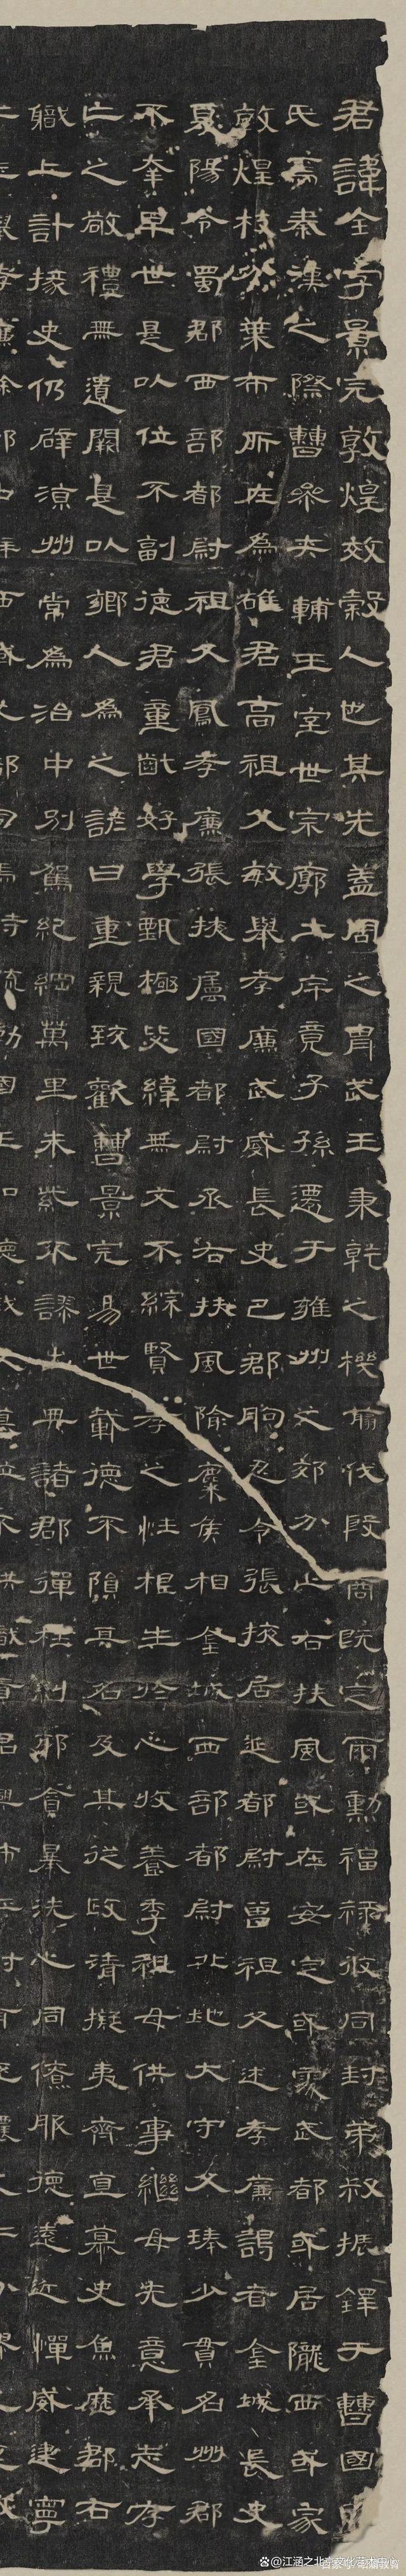 君諱全字景完敦煌效穀人也其先蓋周之胄武王秉乾之機翦伐殷商既定爾勳福祿攸同封弟叔振鐸于曹國
氏焉秦漢之際曹參夾輔王室世宗廓土斥竟子孫遷于雍州之郊分止右扶風或在安定或處武都或居隴西或家
敦煌枝分葉布所在為雄君高祖父敏舉孝廉武威長史巴郡朐忍令張掖居延都尉曾祖父述孝廉謁者金城長史
夏陽令蜀郡西部都尉祖父鳳孝廉張掖屬國都尉丞右扶風隃麋侯相金城西部都尉北地大守父琫少貫名州郡
不幸早世是以位不副德君童齔好學甄極毖緯無文不綜賢孝之性根生於心收養季祖母供事繼母先意承志存
亡之敬禮無遺闕是以鄉人為之諺曰重親致歡曹景完易世載德不隕其名及其從政清擬夷齊直慕史魚歷郡右
職上計掾史仍辟涼州常為治中別駕紀綱萬里朱紫不謬出典諸郡彈枉糾邪貪暴洗心同僚服德遠近憚威建寧
@江涵之北